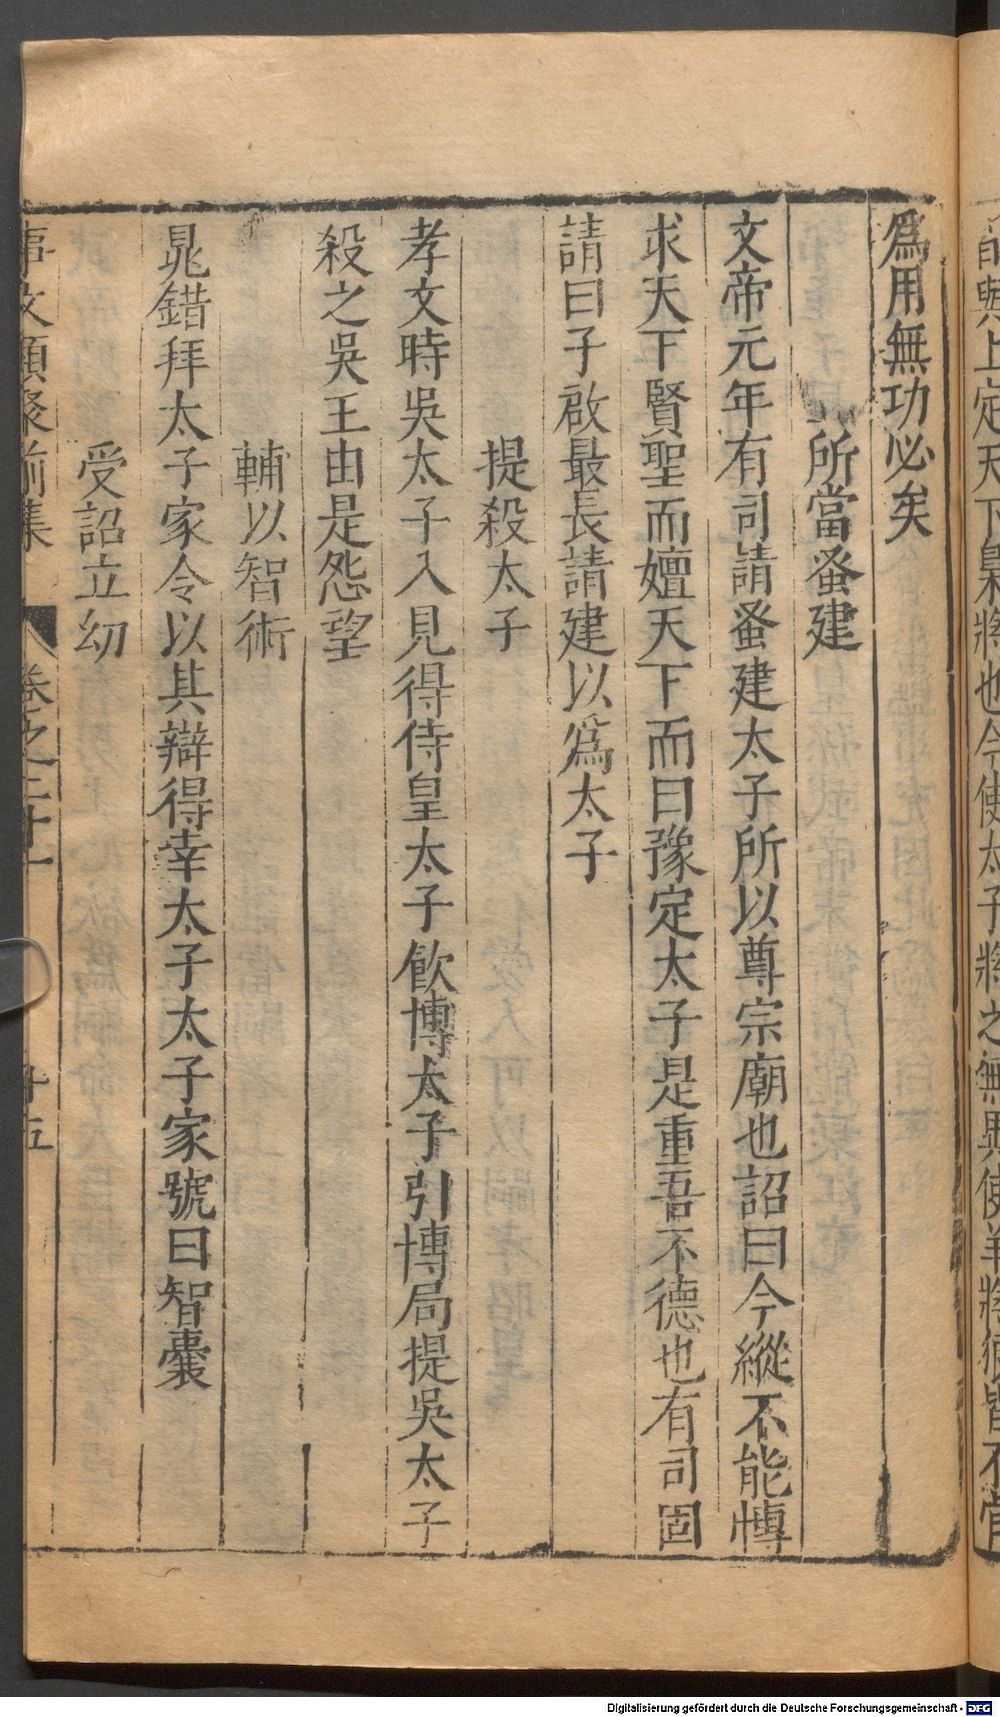 與上定天下梟將也今使太子將之無異使羊將狼皆不肯
爲用無功必矣
所當蚤建
文帝元年有司請蚤建太子所以尊宗廟也詔曰今縱不能慱
求天下賢聖而嬗天下而曰豫定太子是重吾不德也有司固
請曰子啟最長請建以爲太子
提殺太子
孝文時吳太子入見得侍皇太子飲博太子引博局提吳太子
殺之吳王由是怨望
輔以智術
晁錯拜太子家令以其辯得幸太子太子家號曰智囊
受詔立幼
事文類聚前集 卷之二十一 五
Digitalisierung gefördert durch die Deutsche Forschungsgemeinschaft - DFG